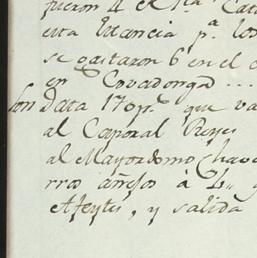 fueron 4 el
esta Estancia p.ª los
se gastaron 6 en el
en Covadonga ...
Son Data 170 p.s que va
al Caporal Reyes
al Mayordomo Chave
rro añejos à 2,,
Afeytes, y salida